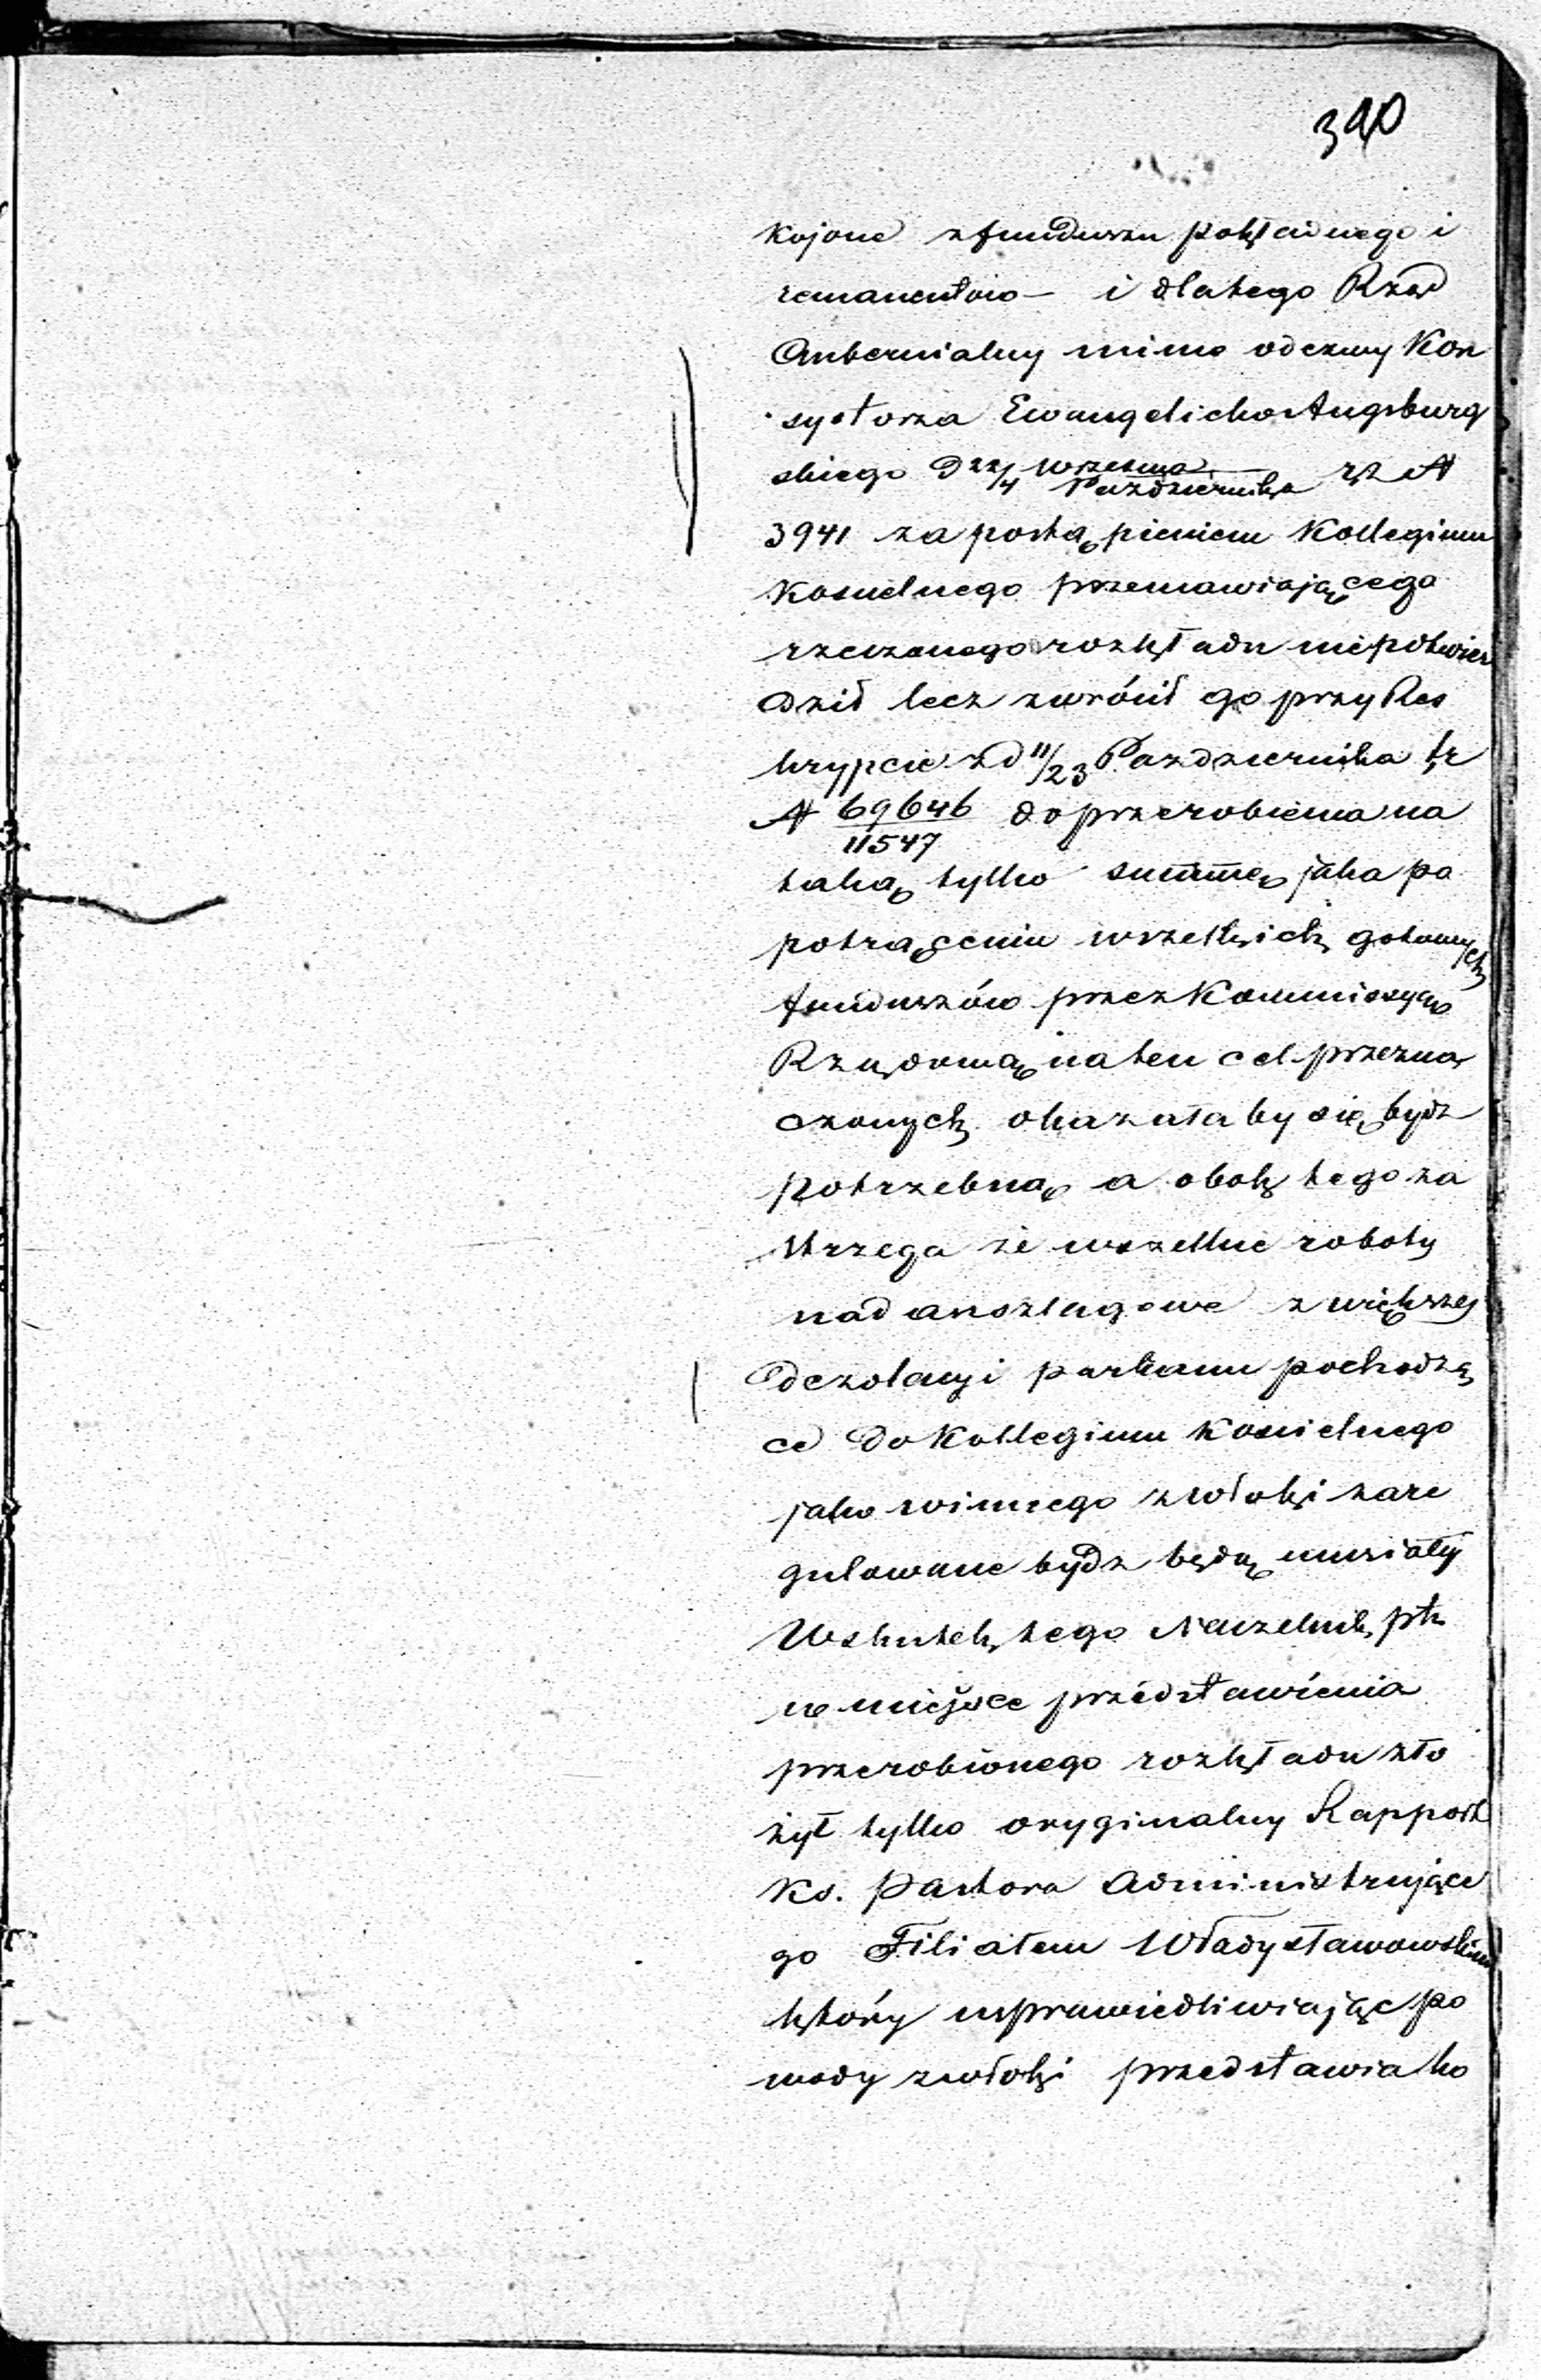 390
kojone z funduszu pokładnego i
remanentów – i dlatego Rząd
Gubernialny mimo odezwy Kon
systorza Ewangelicko Augsburg
skiego d 22/4 Września/Października rz N
3941 za postąpieniem Kollegium
Koscielnego przemawiającego
rzeczonego rozkładu niepotwier
dził lecz zwrócił go przy Res
krypcie z d 11/23 Pazdziernika tr
N 69646/11547 do przerobienia na
taką tylko summę jaka po
potrąceniu wszelkich gotowych
funduszów przez Kommissyą
Rządową na ten cel przezna
czonych okazałaby się bydz
potrzebną a obok tego za
strzega że wszelkie roboty
nadanszlagowe z większej
dezolacyi parkanu pochodzą
ce do Kollegium Koscielnego
jako winnego zwłoki zare
gulowane bydz będą musiały
Wskutek tego Naczelnik ptu
w miejsce przedstawienia
przerobionego rozkładu zło
żył tylko oryginalny Rapport
Ks. Pastora Administrujące
go Filiałem Władysławowskim
który usprawiedliwiając po
wody zwłoki przedstawia ko